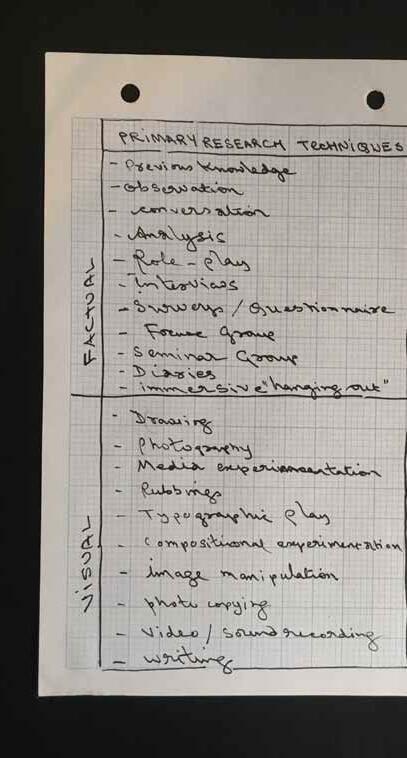 PRIMARY RESEARCH TECHNIQUES
FACTUAL
- Previous knowledge
- observation
- conversation
- Analysis
- Role - play
- Interviews
- Surveys / Questionnaire
- Focus Group
- Seminar Group
- Diaries
- immersive "hanging out"
VISUAL
- Drawing
- Photography
- Media experimentation
- Rubbings
- Typographic play
- Compositional experimentation
- image manipulation
- photo copying
- video / sound recording
- writing